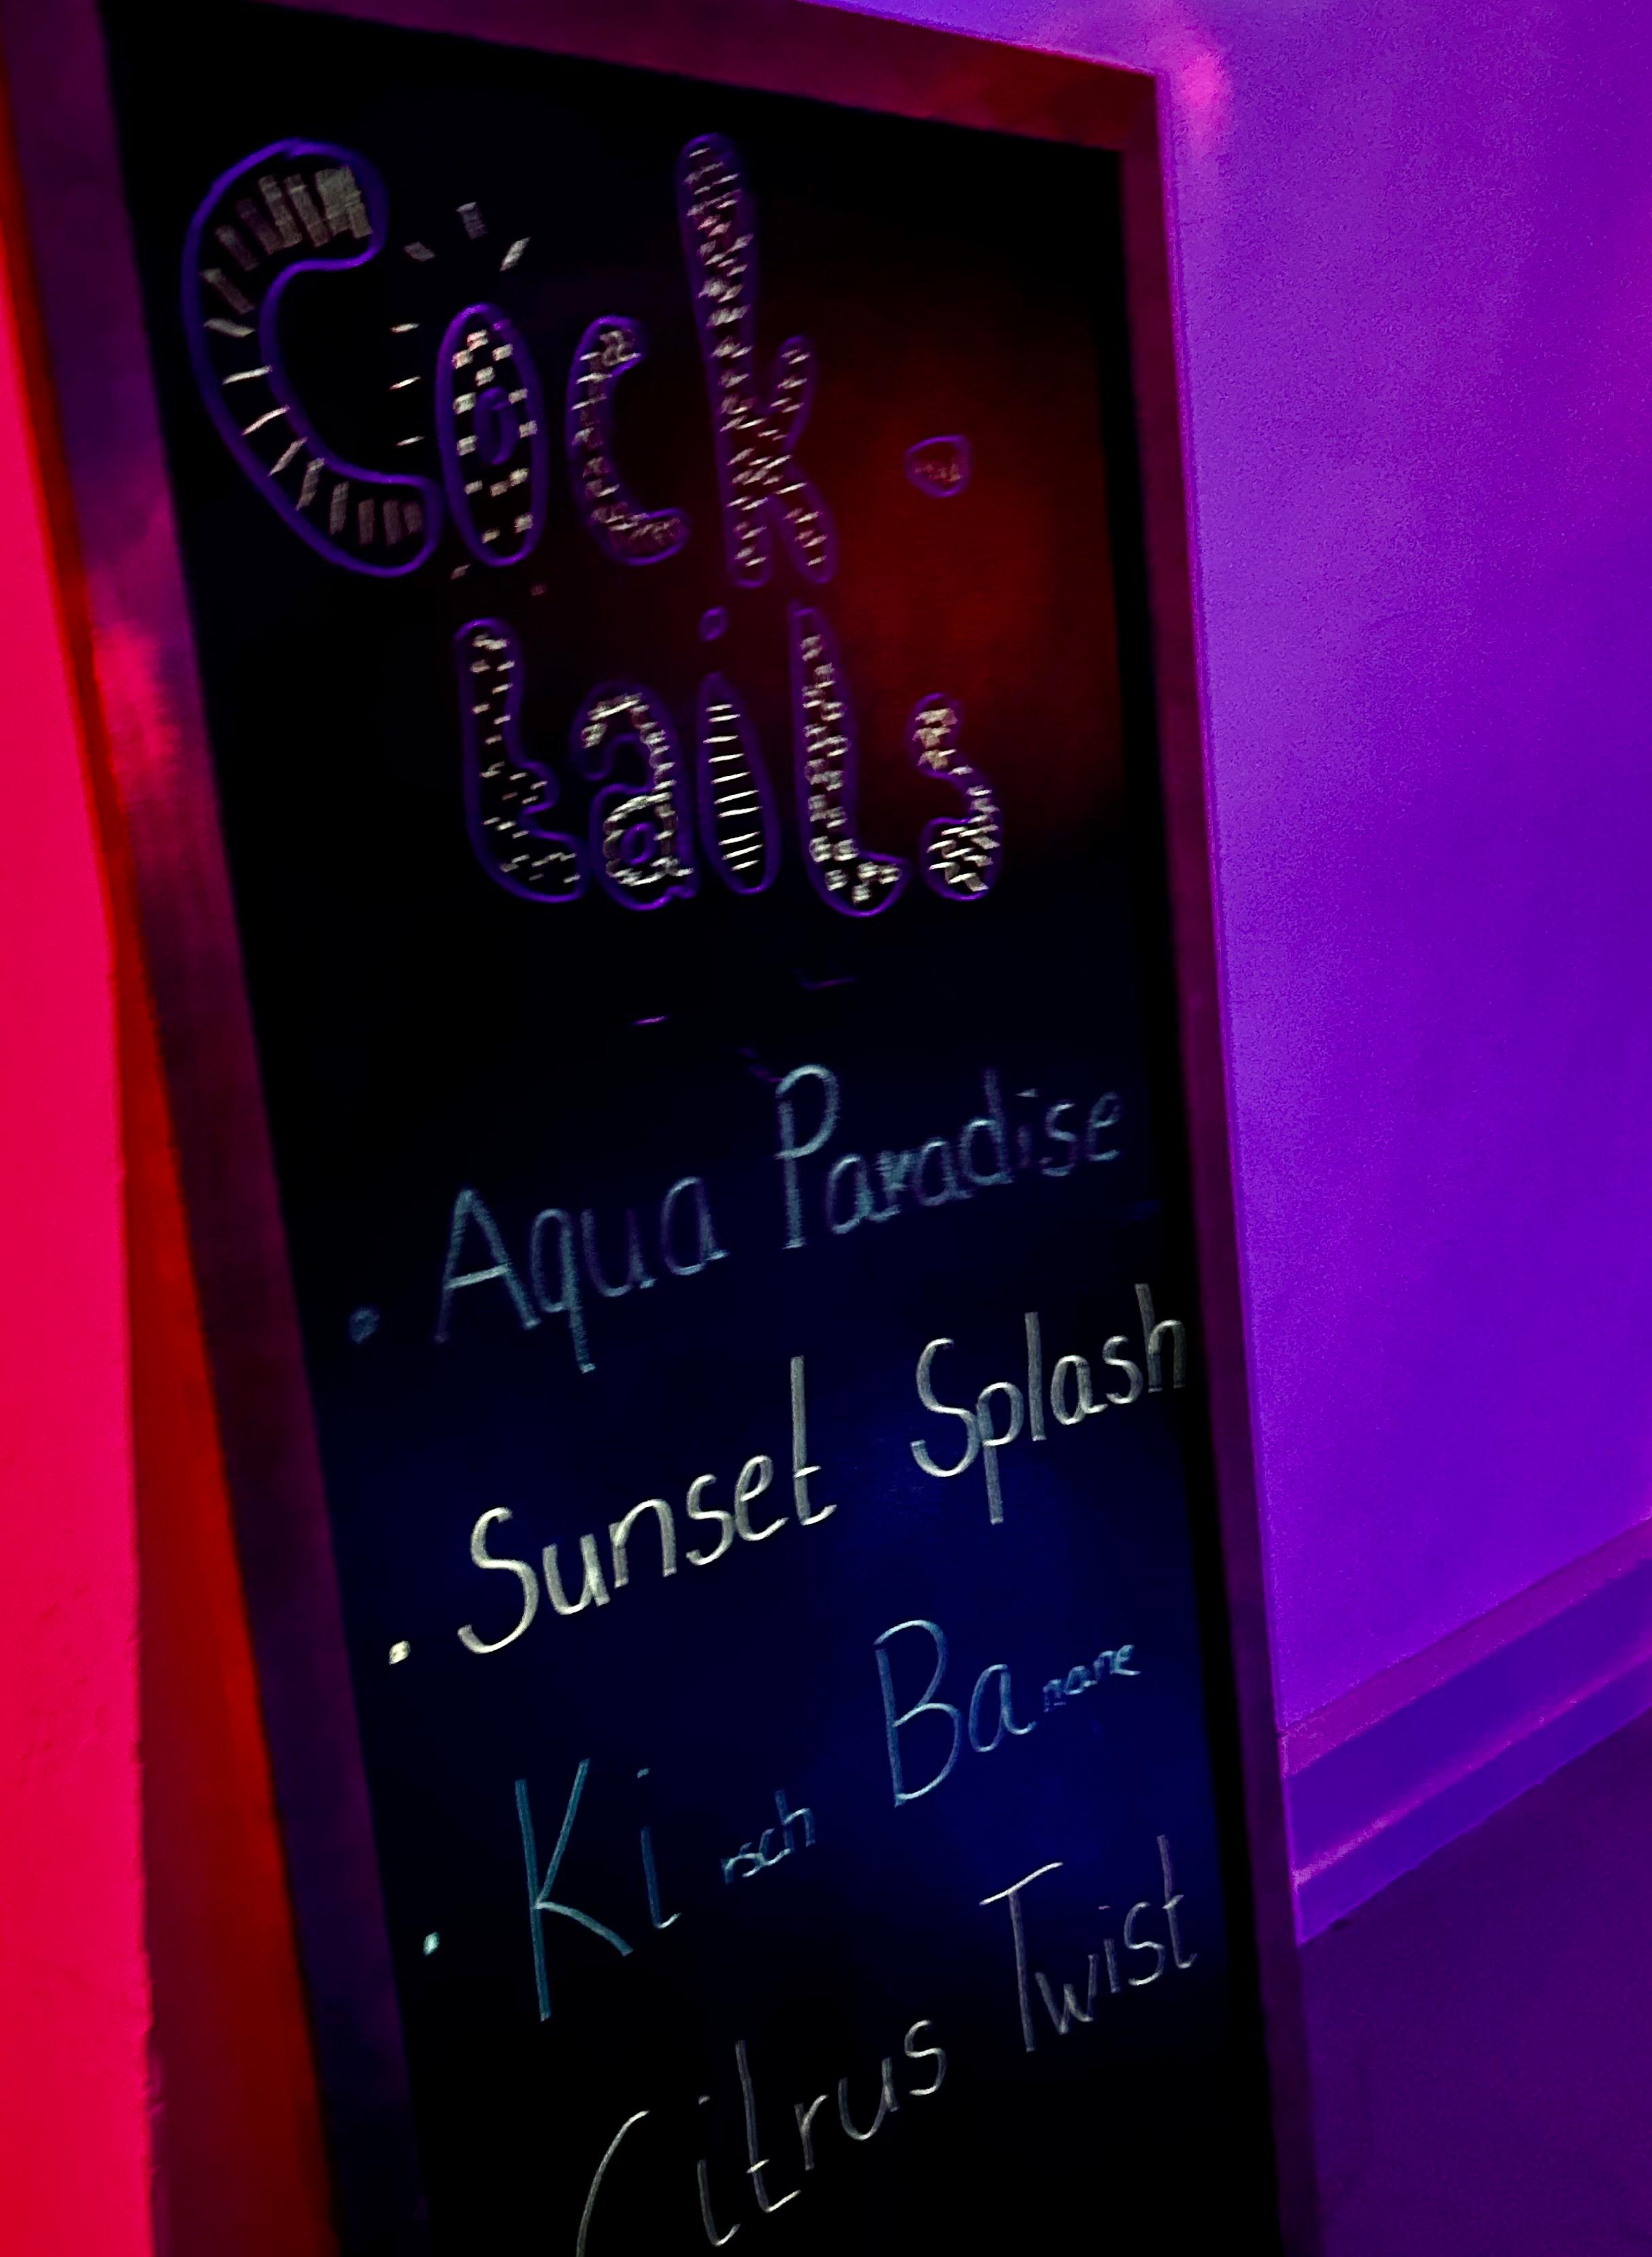 Cock-
tails
• Aqua Paradise
• Sunset Splash
• Kirsch Banane
Citrus Twist